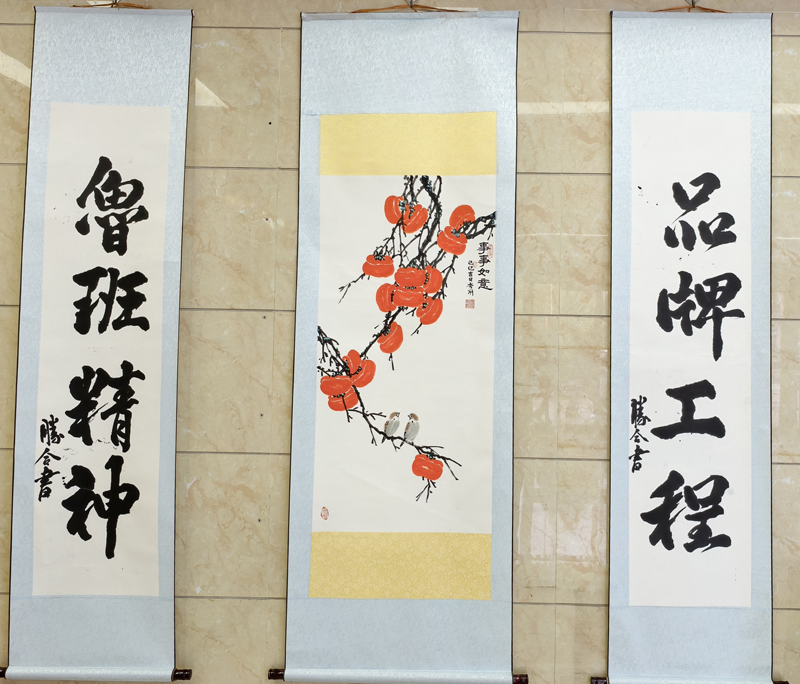 魯班精神
勝合書
事事如意
品牌工程
勝合書